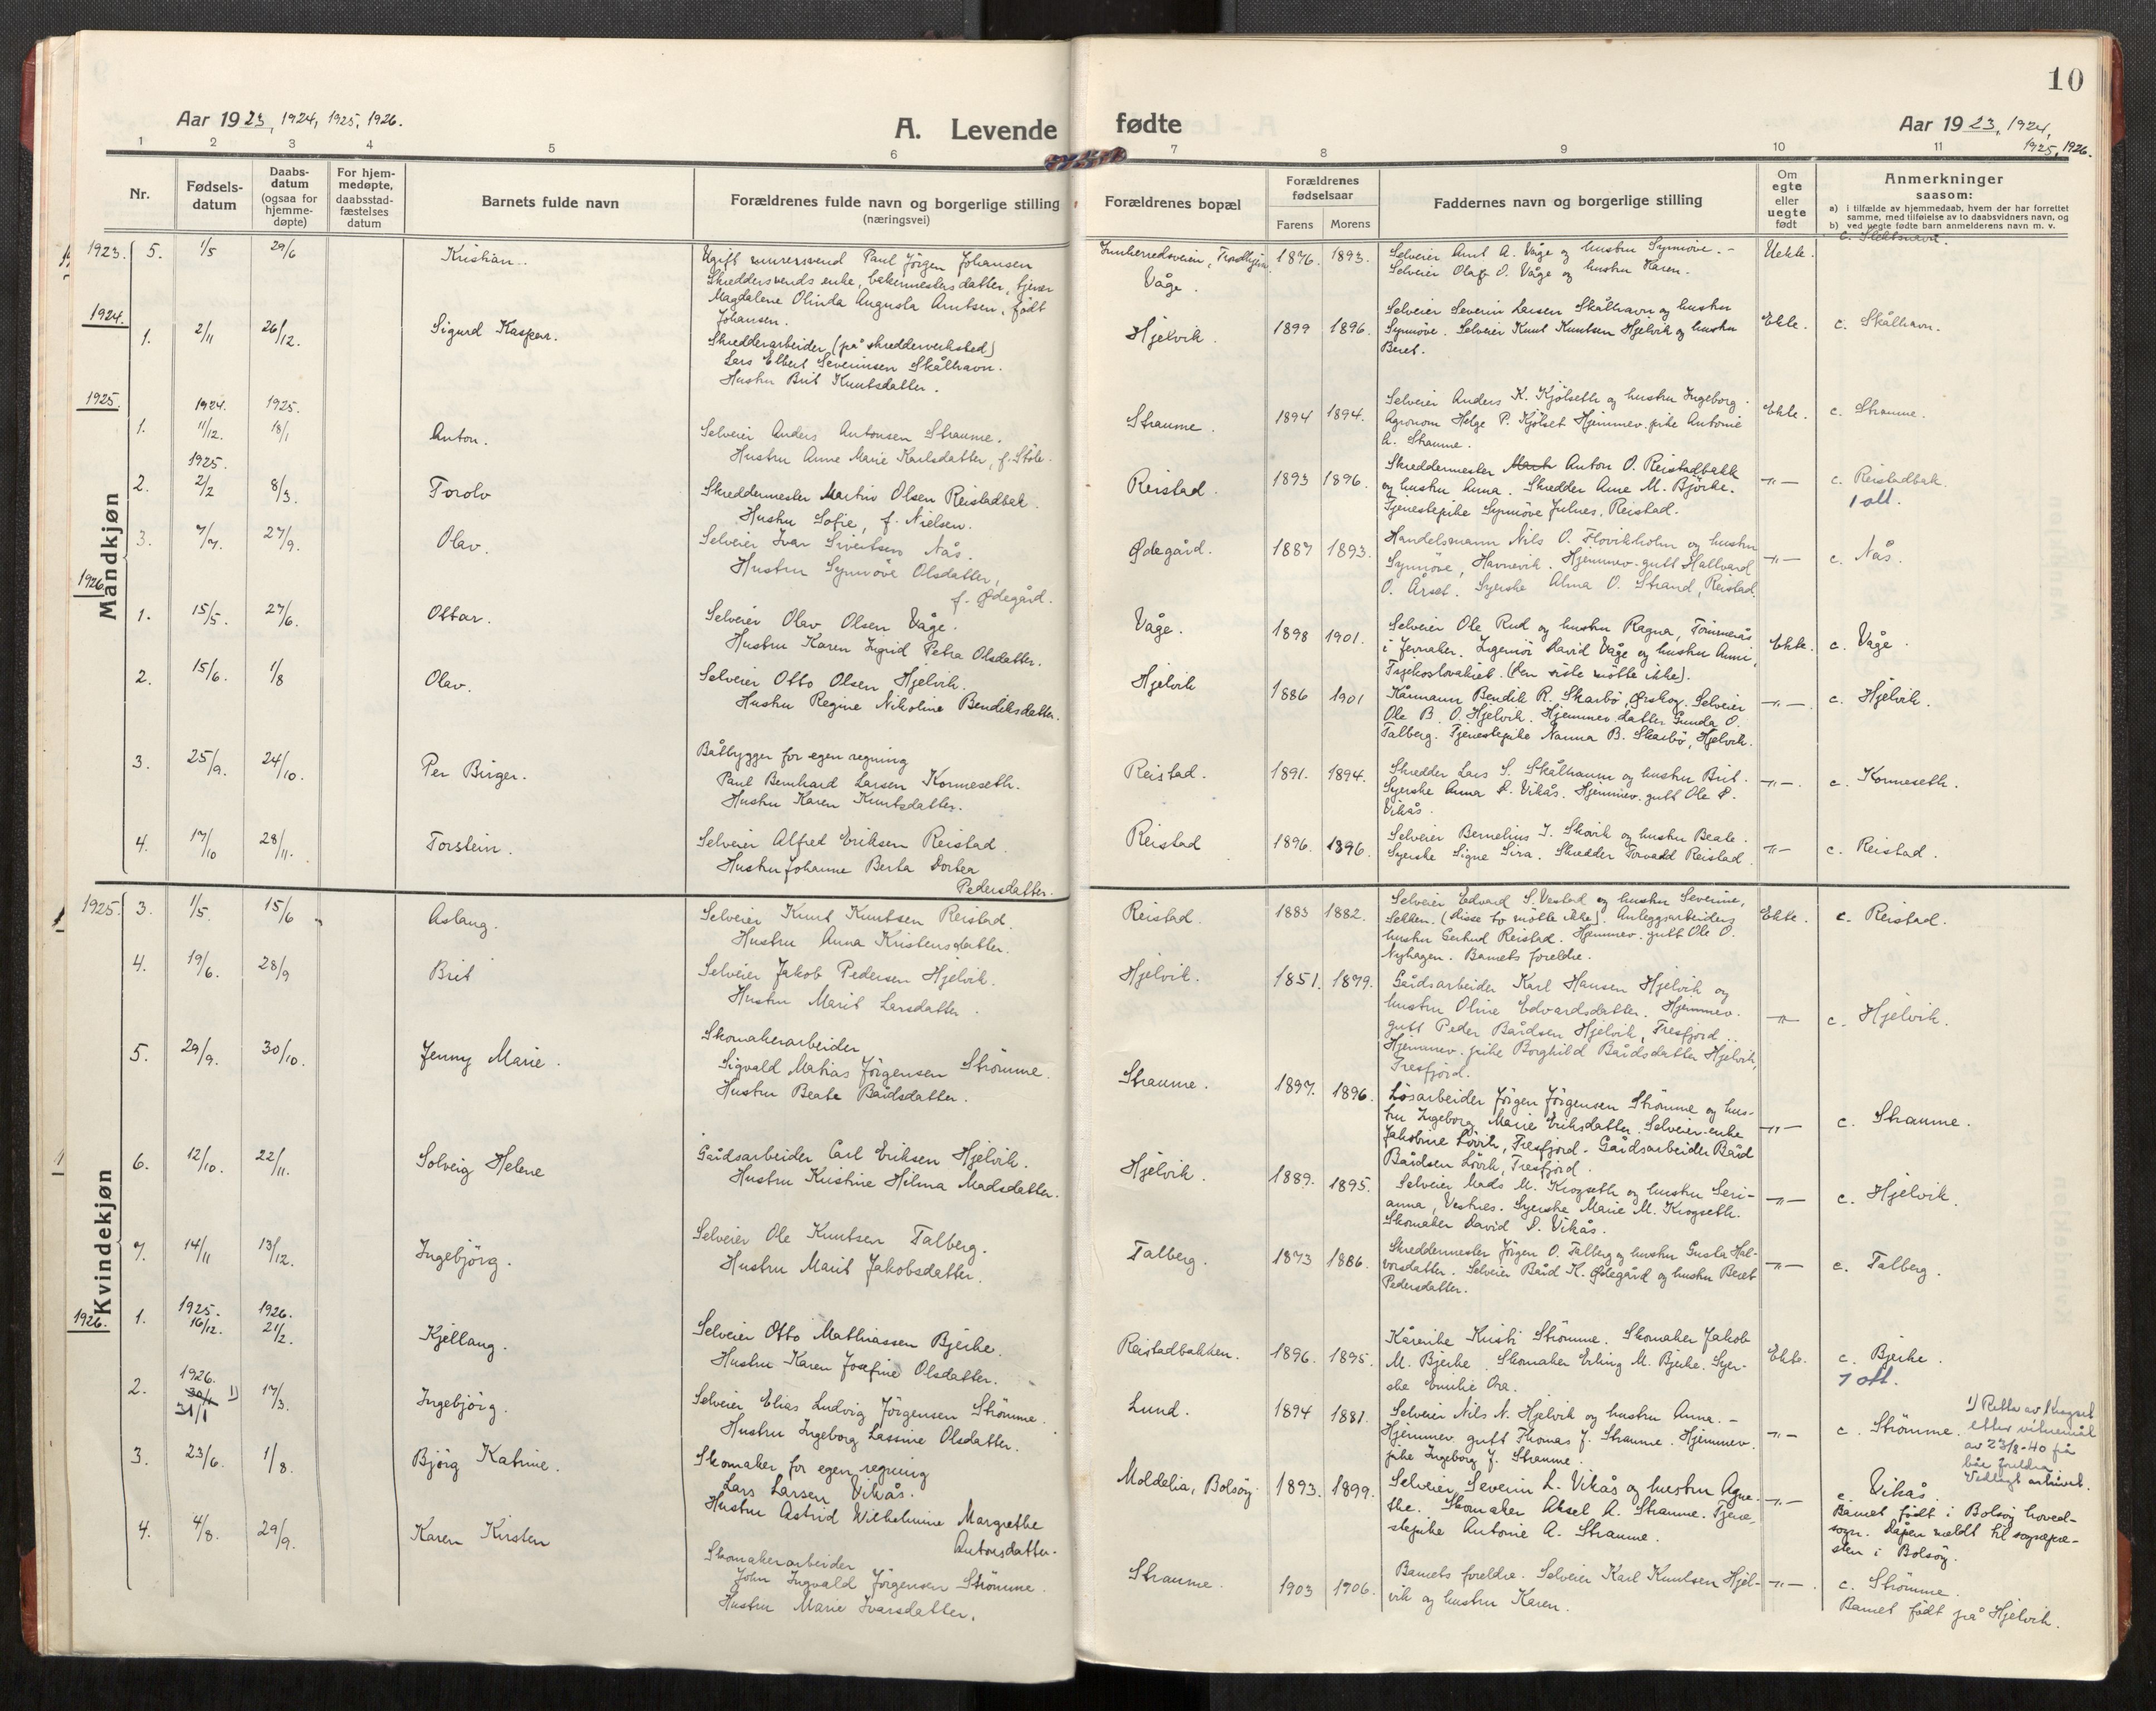 10
Aar 1923, 1924, 1925, 1926.
A. Levende fødte
Aar 1923, 1924,
1925, 1926.
1 2 3 4 5 6 7 8 9 10 11
Nr.
Fødsels-
datum
Daabs-
datum
(ogsaa for
hjemme-
døpte)
For hjem-
medøpte,
daabsstad-
fæstelses
datum
Barnets fulde navn
Forældrenes fulde navn og borgerlige stilling
(næringsvei)
Forældrenes bopæl
Forældrenes
fødselsaar
Farens Morens
Faddernes navn og borgerlige stilling
Om
egte
eller
uegte
født
Anmerkninger
saasom:
a) i tilfælde av hjemmedaab, hvem der har forrettet
samme, med tilføielse av to daabsvidners navn, og
b) ved uegte fødte barn anmelderens navn m. v.
c. Slektsnavn.
Mandkjøn
1923. 5. 1/5 29/6 Kristian.
Ugift murersvend Paul Jörgen Johansen
Skreddersvends enke, bakermesters datter, tjener
Magdalene Olinda Augusta Arntsen, född
Johansen.
Innherredsveien, Trondhjem
Våge.
1876. 1893.
Selveier Arnt A. Våge og hustru Synnöve. -
Selveier Olaf O. Våge og hustru Karen.
Uekte.
1924.
1. 2/11 26/12. Sigurd Kaspar.
Skredderarbeider (på skredderverksted)
Lars Elbert Severinsen Skålhavn.
Hustru Brit Knutsdatter.
Hjelvik.
1899 1896.
Selveier Severin Larsen Skålhavn og hustru
Synnöve. Selveier Knut Knutsen Hjelvik og hustru
Beret.
Ekte. c. Skålhavn.
1925.
1924. 1925.
1. 11/12. 18/1 Anton.
Selveier Anders Antonsen Straume.
Hustru Anne Marie Karlsdatter, f. Stole.
Straume.
1894 1894.
Selveier Anders K. Kjölseth og hustru Ingeborg.
Agronom Helge P. Kjölset Hjemmev. pike Antonie
A. Straume.
Ekte. c. Straume.
1925.
2. 2/2 8/3. Torolv
Skreddermester Martin Olsen Reistadbak.
Hustru Sofie, f. Nielsen.
Reistad.
1893 1896.
Skreddermester Anton O. Reistadbakk
og hustru Anna. Skredder Arne M. Björke.
Tjenestepike Synnöve Julnes, Reistad.
-"- c. Reistadbak.
1 att.
3. 7/7. 27/9. Olav.
Selveier Ivar Sivertsen Nås.
Hustru Synnöve Olsdatter,
f. Ødegård.
Ødegård.
1887 1893.
Handelsmann Nils O. Flovikholm og hustru
Synnöve, Havnevik. Hjemmev. gutt Hallvard
O. Årset. Syerske Alma O. Strand, Reistad.
-"- c. Nås.
1926
1. 15/5. 27/6. Ottar.
Selveier Olav Olsen Våge.
Hustru Karen Ingrid Petra Olsdatter.
Våge.
1898 1901.
Selveier Ole Rud og hustru Ragna, Tömmerås
i Jevnaker. Ingeniör David Våge og hustru Anni,
Tsjekoslovakiet. (Den siste mötte ikke).
Ekte. c. Våge.
2. 15/6. 1/8 Olav.
Selveier Otto Olsen Hjelvik.
Hustru Regine Nikoline Bendiksdatter.
Hjelvik
1886 1901
Kårmann Bendik R. Skarbö, Ørskog. Selveier
Ole B. O. Hjelvik. Hjemmev. datter Gunda O.
Talberg. Tjenestepike Nanna B. Skarbö, Hjelvik.
-"- c. Hjelvik.
3. 25/9. 24/10. Per Birger.
Båtbygger for egen regning
Paul Bernhard Larsen Kormeseth.
Hustru Karen Knutsdatter.
Reistad.
1891. 1894.
Skredder Lars S. Skålhavn og hustru Brit.
Syerske Anna P. Vikås. Hjemmev. gutt Ole P.
Vikås.
-"- c. Kormeseth.
4. 17/10 28/11. Torstein.
Selveier Alfred Eriksen Reistad.
Hustru Johanne Berta Dortea
Pedersdatter.
Reistad
1896. 1896.
Selveier Bernelius I. Skovik og hustru Beate.
Syerske Signe Sira. Skredder Torvald Reistad.
-"- c. Reistad.
Kvindekjøn
1925. 3. 1/5. 15/6 Aslaug.
Selveier Knut Knutsen Reistad.
Hustru Anna Kristensdatter.
Reistad.
1883 1882.
Selveier Edvard S. Vestad og hustru Severine,
Sekken. (Disse to mötte ikke). Anleggsarbeiders
hustru Gertrud Reistad. Hjemmev. gutt Ole O.
Nyhagen. Barnets foreldre.
Ekte. c. Reistad.
4. 19/6. 28/9 Brit
Selveier Jakob Pedersen Hjelvik.
Hustru Marit Larsdatter.
Hjelvik.
1851. 1879.
Gårdsarbeider Karl Hansen Hjelvik og
hustru Oline Edvardsdatter. Hjemmev.
gutt Peder Bårdsen Hjelvik, Tresfjord.
Hjemmev. pike Borghild Bårdsdatter Hjelvik,
Tresfjord.
-"- c. Hjelvik.
5. 29/9. 30/10. Jenny Marie.
Skomakerarbeider
Sigvald Matias Jörgensen Strömme.
Hustru Beate Bårdsdatter.
Straume.
1897. 1896.
Lösarbeider Jörgen Jörgensen Strömme og hus-
tru Ingeborg Marie Eriksdatter. Selveier-enke
Jakobine Lövik, Tresfjord. Gårdsarbeider Bård
Bårdsen Lövik, Tresfjord.
-"- c. Straume.
6. 12/10. 22/11. Solveig Helene
Gårdsarbeider Carl Eriksen Hjelvik.
Hustru Kristine Hilma Madsdatter.
Hjelvik.
1889. 1895.
Selveier Mads M. Krogseth og hustru Seri-
anna, Vestnes. Syerske Marie M. Krogseth.
Skomaker David P. Vikås.
-"- c. Hjelvik.
7. 14/11 13/12. Ingebjörg.
Selveier Ole Knutsen Talberg.
Hustru Marit Jakobsdatter.
Talberg.
1873 1886.
Skreddermester Jörgen O. Talberg og hustru Gusta Hal-
vorsdatter. Selveier Bård K. Ødegård og hustru Beret
Pedersdatter.
-"- c. Talberg.
1926.
1925. 1926.
1. 16/12. 21/2. Kjellaug.
Selveier Otto Mathiassen Bjerke.
Hustru Karen Josefine Olsdatter.
Reistadbakken.
1896. 1895.
Kårenke Kristi Strömme. Skomaker Jakob
M. Bjerke. Skomaker Erling M. Bjerke. Syer-
ske Emilie Ora.
Ekte. c. Bjerke.
1 att.
1926.
2. 30/1 1) 31/1 17/3. Ingebjörg.
Selveier Elias Ludvig Jörgensen Strömme.
Hustru Ingeborg Lassine Olsdatter.
Lund.
1894 1881.
Selveier Nils N. Hjelvik og hustru Anna. -
Hjemmev. gutt Thomas J. Straume. Hjemmev.
pike Ingeborg J. Straume.
-"- c. Strömme.
etter vitnemål
av 23/8-40 frå
båe foreldra.
Vedlagt arkivet.
3. 23/6. 1/8. Bjørg Katrine.
Skomaker for egen regning
Lars Larsen Vikås.
Hustru Astrid Wilhelmine Margrethe
Antonsdatter.
Moldelia, Bolsöy.
1893. 1899.
Selveier Severin L. Vikås og hustru Agne-
the. Skomaker Aksel A. Straume. Tjene-
stepike Antonie A. Straume.
-"- c. Vikås.
Barnet född i Bolsöy hoved-
sogn. Dåpen meldt til sognepre-
sten i Bolsöy.
4. 4/8. 29/9. Karen Kirsten
Skomakerarbeider
John Ingvald Jörgensen Strömme.
Hustru Marie Ivarsdatter.
Straume.
1903 1906.
Barnets foreldre. Selveier Karl Knutsen Hjel-
vik og hustru Karen.
-"- c. Strömme.
Barnet född på Hjelvik.